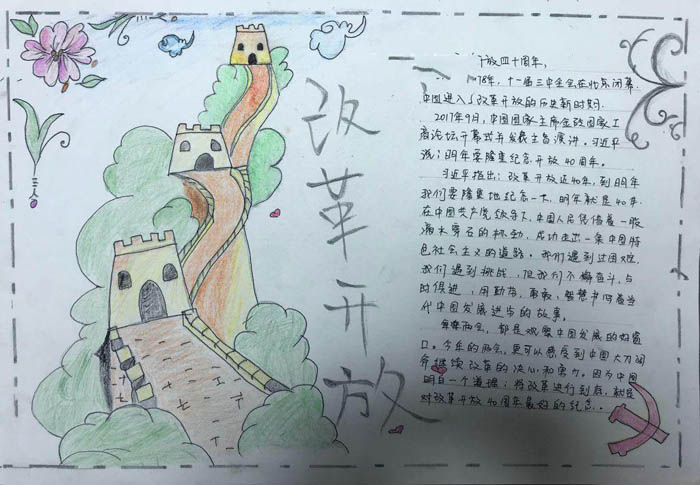 改革开放
开放四十周年，
1978年，十一届三中全会在北京闭幕.
中国进入了改革开放的历史新时期.
2017年9月，中国国家主席金砖国家工
商论坛开幕式并发表主旨演讲。习近平
说：明年要隆重纪念开放40周年。
习近平指出：改革开放近40年，到明年
我们要隆重地纪念一下，明年就是40年.
在中国共产党领导下，中国人民凭借着一股
滴水穿石的拼劲，成功走出一条中国特
色社会主义的道路。我们遇到过困难，
我们遇到挑战，但我们不懈奋斗，与
时俱进，用勤劳、勇敢、智慧书写着当
代中国发展进步的故事。
每年两会，都是观察中国发展的好窗
口。今年的两会，更可以感受到中国大刀阔
斧继续改革的决心和努力。因为中国
明白一个道理：将改革进行到底，就是
对改革开放40周年最好的纪念。